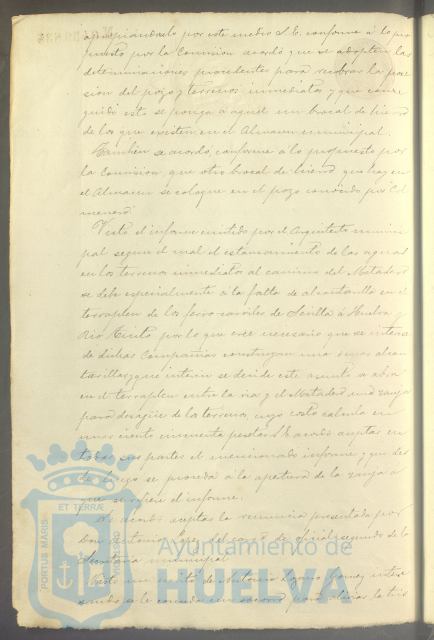 apropiándoselo por este medio S.E. conforme á lo pro
puesto por la Comision acordó que se adopten las
determinaciones procedentes para recobrar la pose
sion del pozo y terrenos inmediatos y que conse
guido esto se ponga á aquel un brocal de hierro
de los que existen en el Almacen municipal.
Tambien se acordó, conforme á lo propuesto por
la Comision, que otro brocal de hierro que hay en
el Almacen se coloque en el pozo conocido por Col
menero
Visto el informe emitido por el Arquitecto munici
pal segun el cual el estancamiento de las aguas
en los terrenos inmediatos al camino del Matadero
se debe especialmente á la falta de alcantarilla en el
terraplen de los ferro-carriles de Sevilla á Huelva y
Rio Tinto por lo que cree necesario que se interese
de dichas Compañias construyan una alcan
tarilla y que interin se decide este asunto se abra
en el terraplen entre la ria y el Matadero una zanja
para desagüe de los terrenos, cuyo costo calcula en
unas ciento cincuenta pesetas S.E. acordó aceptar en
todas sus partes el mencionado informe y que des
de luego se proceda á la apertura de la zanja á
que se refiere el informe.
Se acordó aceptar la renuncia presentada por
Don Antonio Lopez del cargo de oficial segundo de la
Secretaria municipal.
Visto un escrito de Antonio Gomez intere
sando se le conceda un socorro para aliviar la tris
PORTUS MARIS
ET TERRÆ
CUSTODIA
Ayuntamiento de
HUELVA